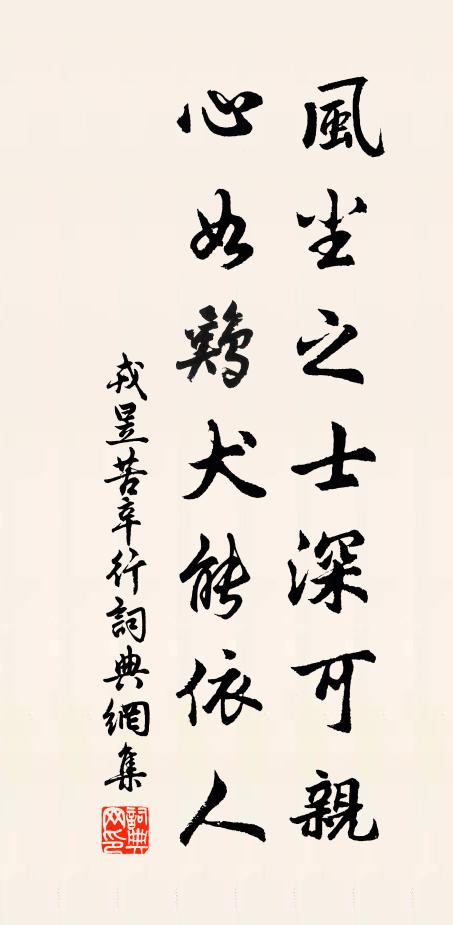 風尘之士深可親
心如鷄犬能依人
戎昱苦辛行詞典網集
詞典網印